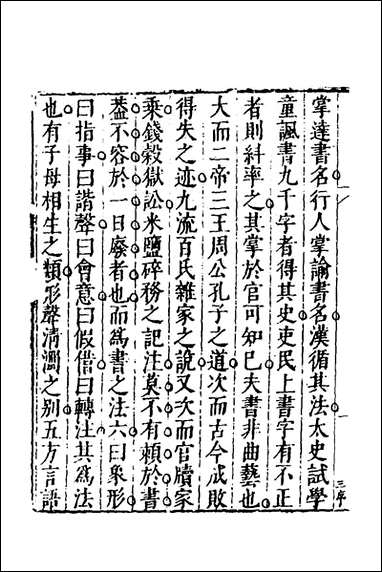 掌達書名行人掌諭書名漢循其法太史試學
童諷書九千字者得其史吏民上書字有不正
者則糾率之其掌於官可知已夫書非曲藝也
大而二帝三王周公孔子之道次而古今成敗
得失之迹九流百氏雜家之說又次而官牘家
乘錢穀獄訟米鹽碎務之記注莫不有頼於書
葢不容於一日廢者也而為書之法六曰象形
曰指事曰諧聲曰會意曰假借曰轉注其為法
也有子母相生之類形聲清濁之别五方言語
三序